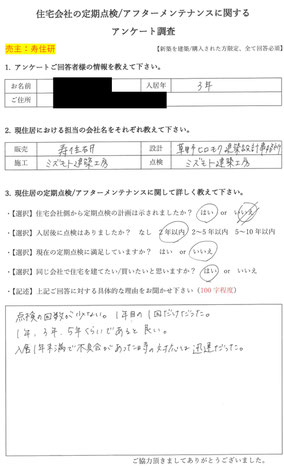 住宅会社の定期点検/アフターメンテナンスに関する
アンケート調査
売主：寿住研
【新築を建築/購入された方限定、全て回答必須】
1. アンケートご回答者様の情報を教えて下さい。
お名前 入居年 3年
ご住所
2. 現住居における担当の会社名をそれぞれ教えて下さい。
販売 寿住研 設計 ヒロモク建築設計事務所
施工 ミズモト建築工房 点検 ミズモト建築工房
3. 現住居の定期点検/アフターメンテナンスに関して詳しく教えて下さい。
・【選択】住宅会社側から定期点検の計画は示されましたか？ はい or いいえ
・【選択】入居後に点検はありましたか？ なし 2年以内 2～5年以内 5～10年以内
・【選択】現在の定期点検に満足していますか？ はい or いいえ
・【選択】同じ会社で住宅を建てたい/買いたいと思いますか？ はい or いいえ
・【記述】上記ご回答に対する具体的な理由をお聞かせ下さい（100字程度）
点検の回数が少ない。1年目の1回だけだった。
1年、3年、5年くらいであると良い。
入居1年未満で不具合があった時の対応は迅速だった。
ご協力頂きましてありがとうございました。